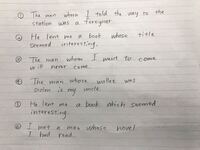 ① The man whom I told the way to the
station was a foreigner.
② He lent me a book whose title
seemed interesting.
③ The man whom I want to come
will never come.
④ The man whose wallet was
stolen is my uncle.
⑤ He lent me a book which seemed
interesting.
⑥ I met a man whose novel
I had read.